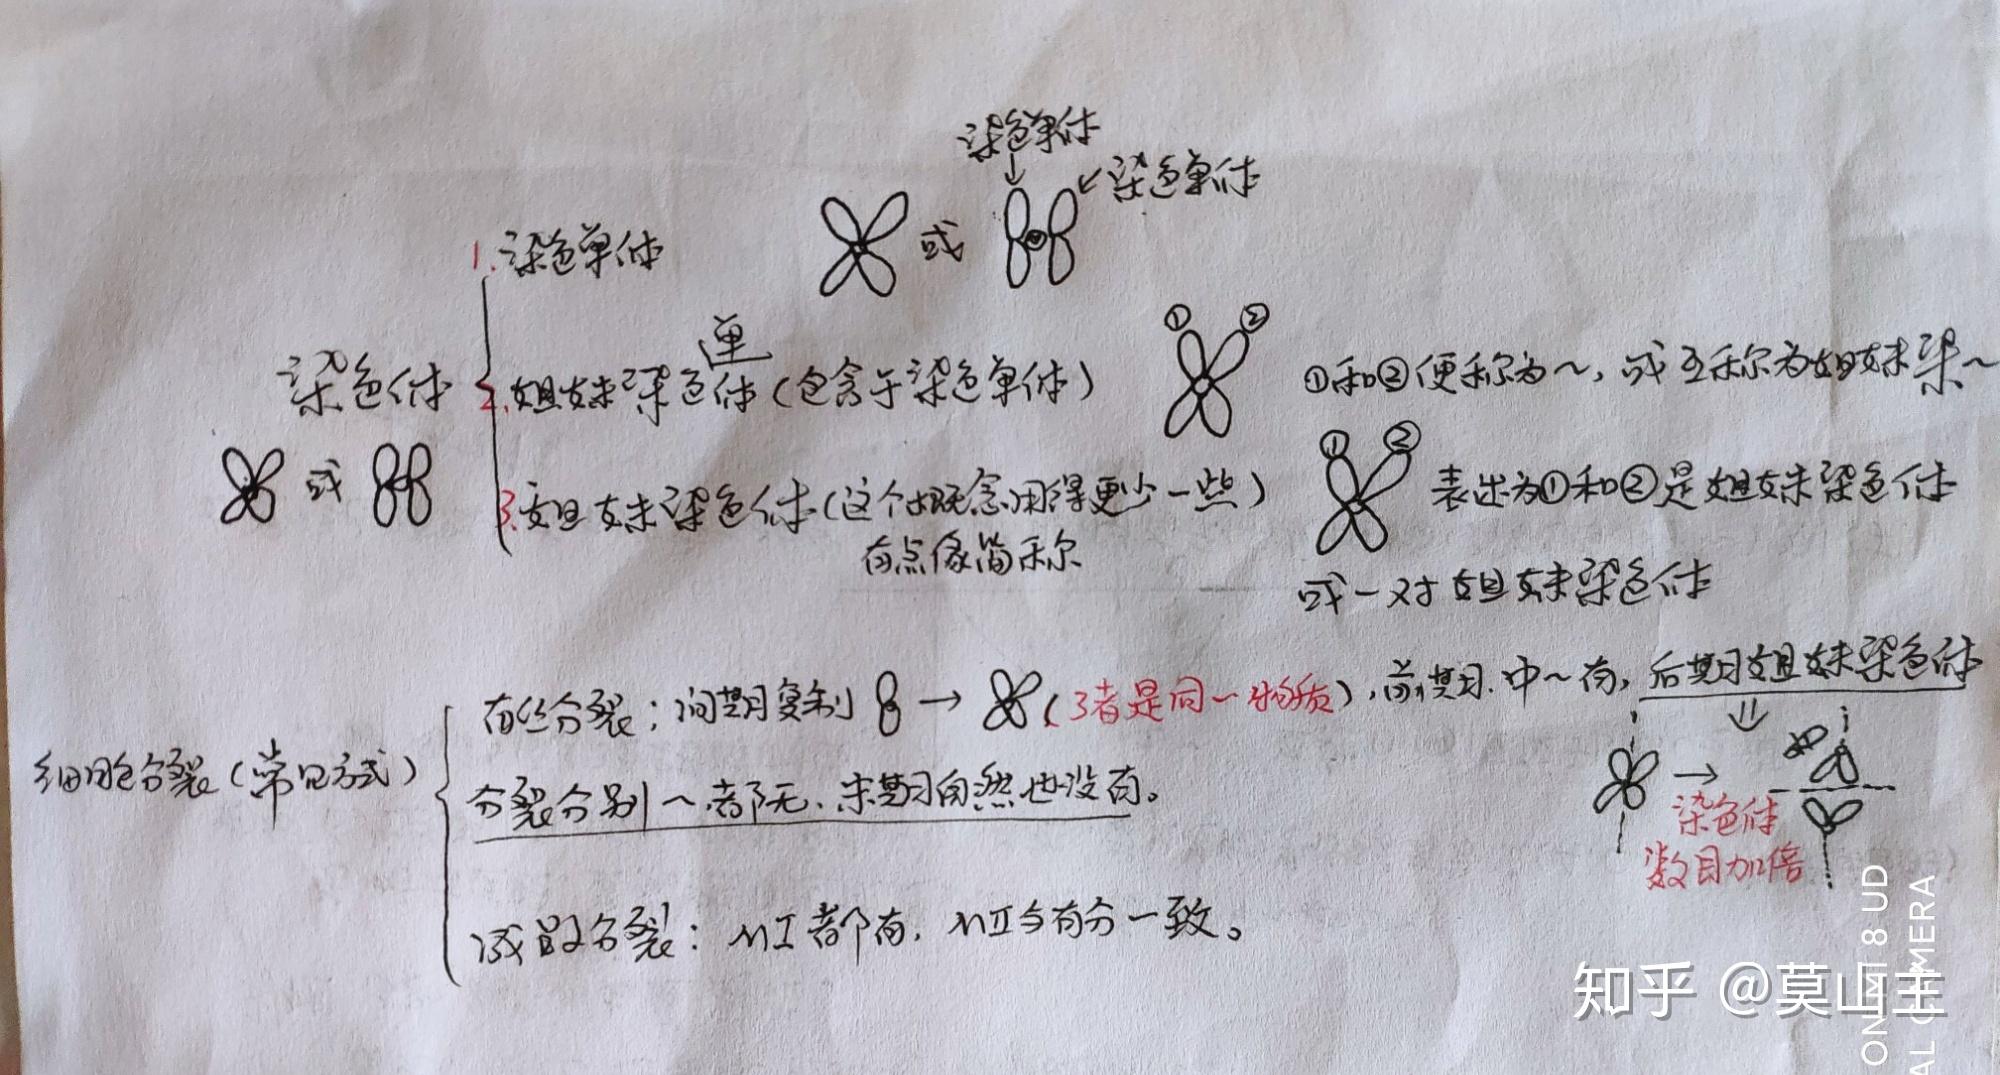 染色单体
染色单体
1.染色单体
或
单
染色体
2.姐妹染色体(包含于染色单体)
① ②
①和②便称为~,或互称为姐妹染~
或
3.姐妹染色体(这个概念用得更少一些)
有点像简称
① ②
表述为①和②是姐妹染色体
或一对姐妹染色体
细胞分裂(常见方式)
有丝分裂:间期复制 → (3者是同一物质),前期.中~有,后期姐妹染色体
分裂分别~都无.末期自然也没有。
⇓
→
染色体
数目加倍
减数分裂:MI都有,MII与有分一致。
知乎 @莫山主
ON MI 8 UD
AL CAMERA